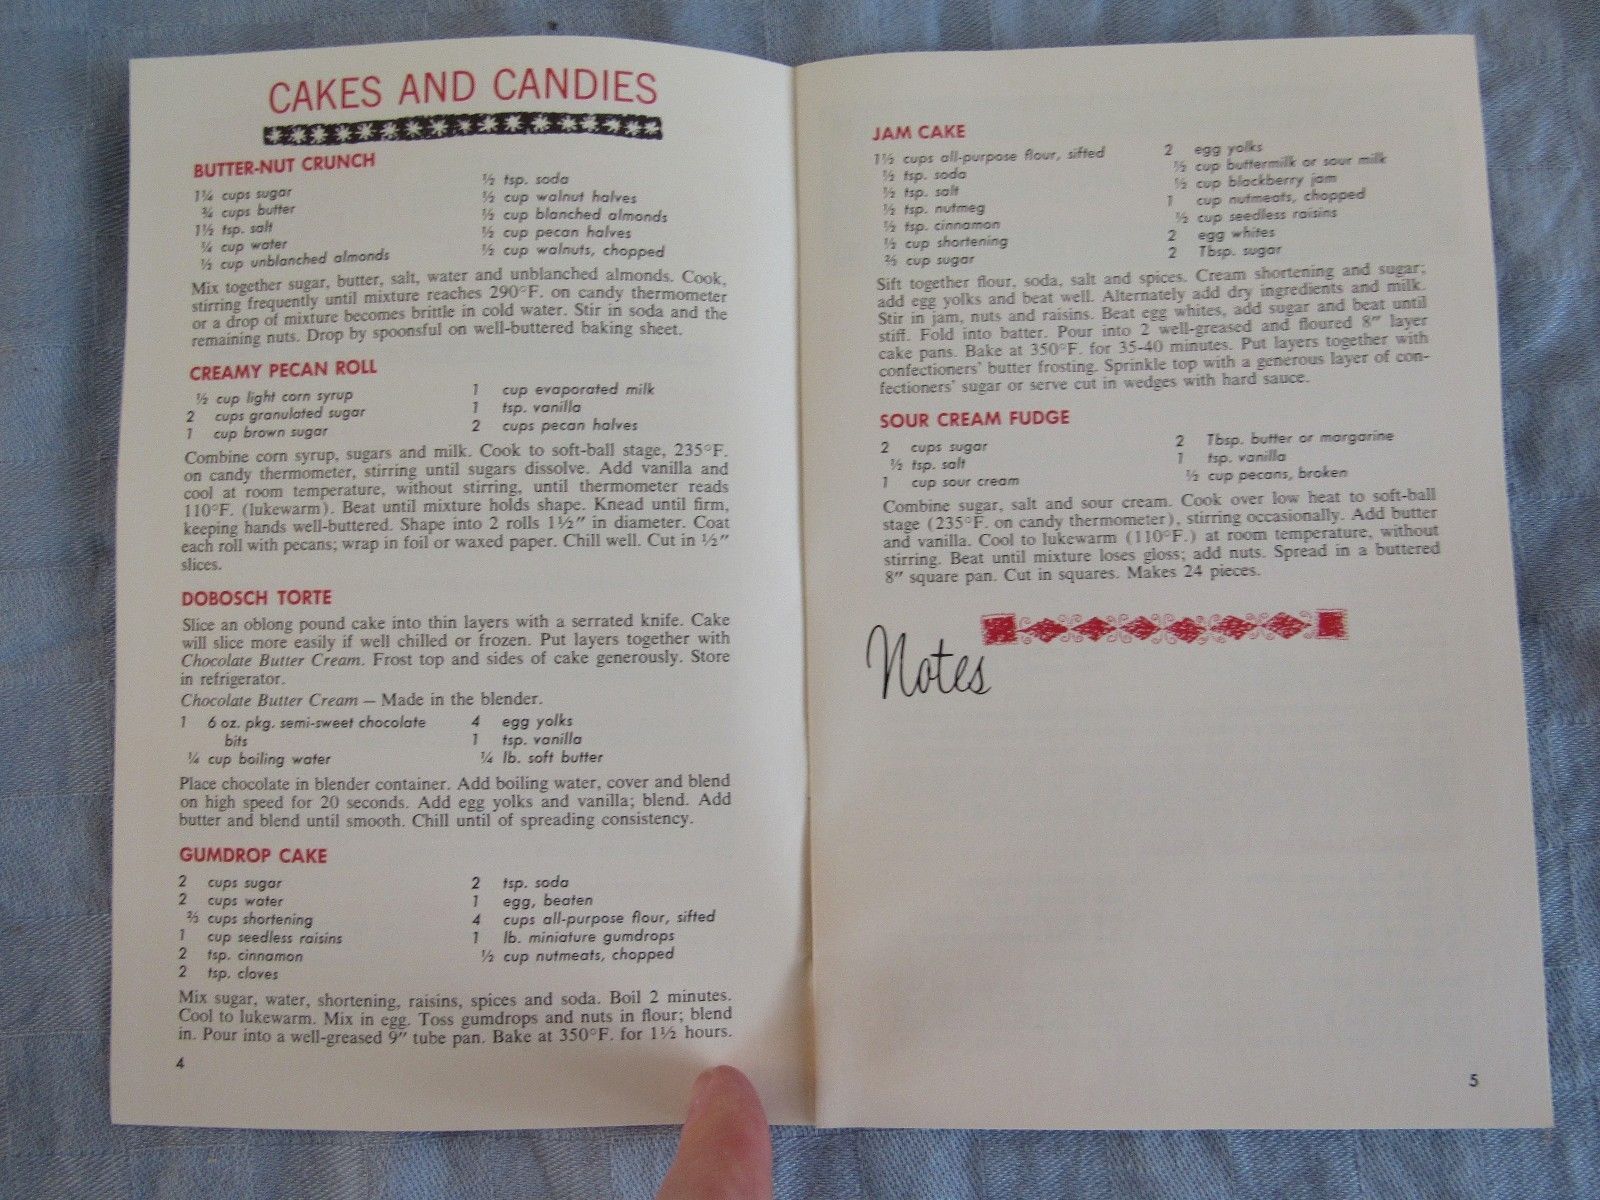 CAKES AND CANDIES
BUTTER-NUT CRUNCH
1¼ cups sugar
¾ cups butter
1½ tsp. salt
¼ cup water
½ cup unblanched almonds
½ tsp. soda
½ cup walnut halves
½ cup blanched almonds
½ cup pecan halves
½ cup walnuts, chopped
Mix together sugar, butter, salt, water and unblanched almonds. Cook,
stirring frequently until mixture reaches 290°F. on candy thermometer
or a drop of mixture becomes brittle in cold water. Stir in soda and the
remaining nuts. Drop by spoonsful on well-buttered baking sheet.
CREAMY PECAN ROLL
½ cup light corn syrup
2 cups granulated sugar
1 cup brown sugar
1 cup evaporated milk
1 tsp. vanilla
2 cups pecan halves
Combine corn syrup, sugars and milk. Cook to soft-ball stage, 235°F.
on candy thermometer, stirring until sugars dissolve. Add vanilla and
cool at room temperature, without stirring, until thermometer reads
110°F. (lukewarm). Beat until mixture holds shape. Knead until firm,
keeping hands well-buttered. Shape into 2 rolls 1½″ in diameter. Coat
each roll with pecans; wrap in foil or waxed paper. Chill well. Cut in ½″
slices.
DOBOSCH TORTE
Slice an oblong pound cake into thin layers with a serrated knife. Cake
will slice more easily if well chilled or frozen. Put layers together with
Chocolate Butter Cream. Frost top and sides of cake generously. Store
in refrigerator.
Chocolate Butter Cream — Made in the blender.
1 6 oz. pkg. semi-sweet chocolate
bits
¼ cup boiling water
4 egg yolks
1 tsp. vanilla
¼ lb. soft butter
Place chocolate in blender container. Add boiling water, cover and blend
on high speed for 20 seconds. Add egg yolks and vanilla; blend. Add
butter and blend until smooth. Chill until of spreading consistency.
GUMDROP CAKE
2 cups sugar
2 cups water
⅔ cups shortening
1 cup seedless raisins
2 tsp. cinnamon
2 tsp. cloves
2 tsp. soda
1 egg, beaten
4 cups all-purpose flour, sifted
1 lb. miniature gumdrops
½ cup nutmeats, chopped
Mix sugar, water, shortening, raisins, spices and soda. Boil 2 minutes.
Cool to lukewarm. Mix in egg. Toss gumdrops and nuts in flour; blend
in. Pour into a well-greased 9″ tube pan. Bake at 350°F. for 1½ hours.
4
JAM CAKE
1½ cups all-purpose flour, sifted
½ tsp. soda
½ tsp. salt
½ tsp. nutmeg
½ tsp. cinnamon
½ cup shortening
⅔ cup sugar
2 egg yolks
½ cup buttermilk or sour milk
½ cup blackberry jam
1 cup nutmeats, chopped
½ cup seedless raisins
2 egg whites
2 Tbsp. sugar
Sift together flour, soda, salt and spices. Cream shortening and sugar;
add egg yolks and beat well. Alternately add dry ingredients and milk.
Stir in jam, nuts and raisins. Beat egg whites, add sugar and beat until
stiff. Fold into batter. Pour into 2 well-greased and floured 8″ layer
cake pans. Bake at 350°F. for 35-40 minutes. Put layers together with
confectioners' butter frosting. Sprinkle top with a generous layer of con-
fectioners' sugar or serve cut in wedges with hard sauce.
SOUR CREAM FUDGE
2 cups sugar
½ tsp. salt
1 cup sour cream
2 Tbsp. butter or margarine
1 tsp. vanilla
½ cup pecans, broken
Combine sugar, salt and sour cream. Cook over low heat to soft-ball
stage (235°F. on candy thermometer), stirring occasionally. Add butter
and vanilla. Cool to lukewarm (110°F.) at room temperature, without
stirring. Beat until mixture loses gloss; add nuts. Spread in a buttered
8″ square pan. Cut in squares. Makes 24 pieces.
Notes
5